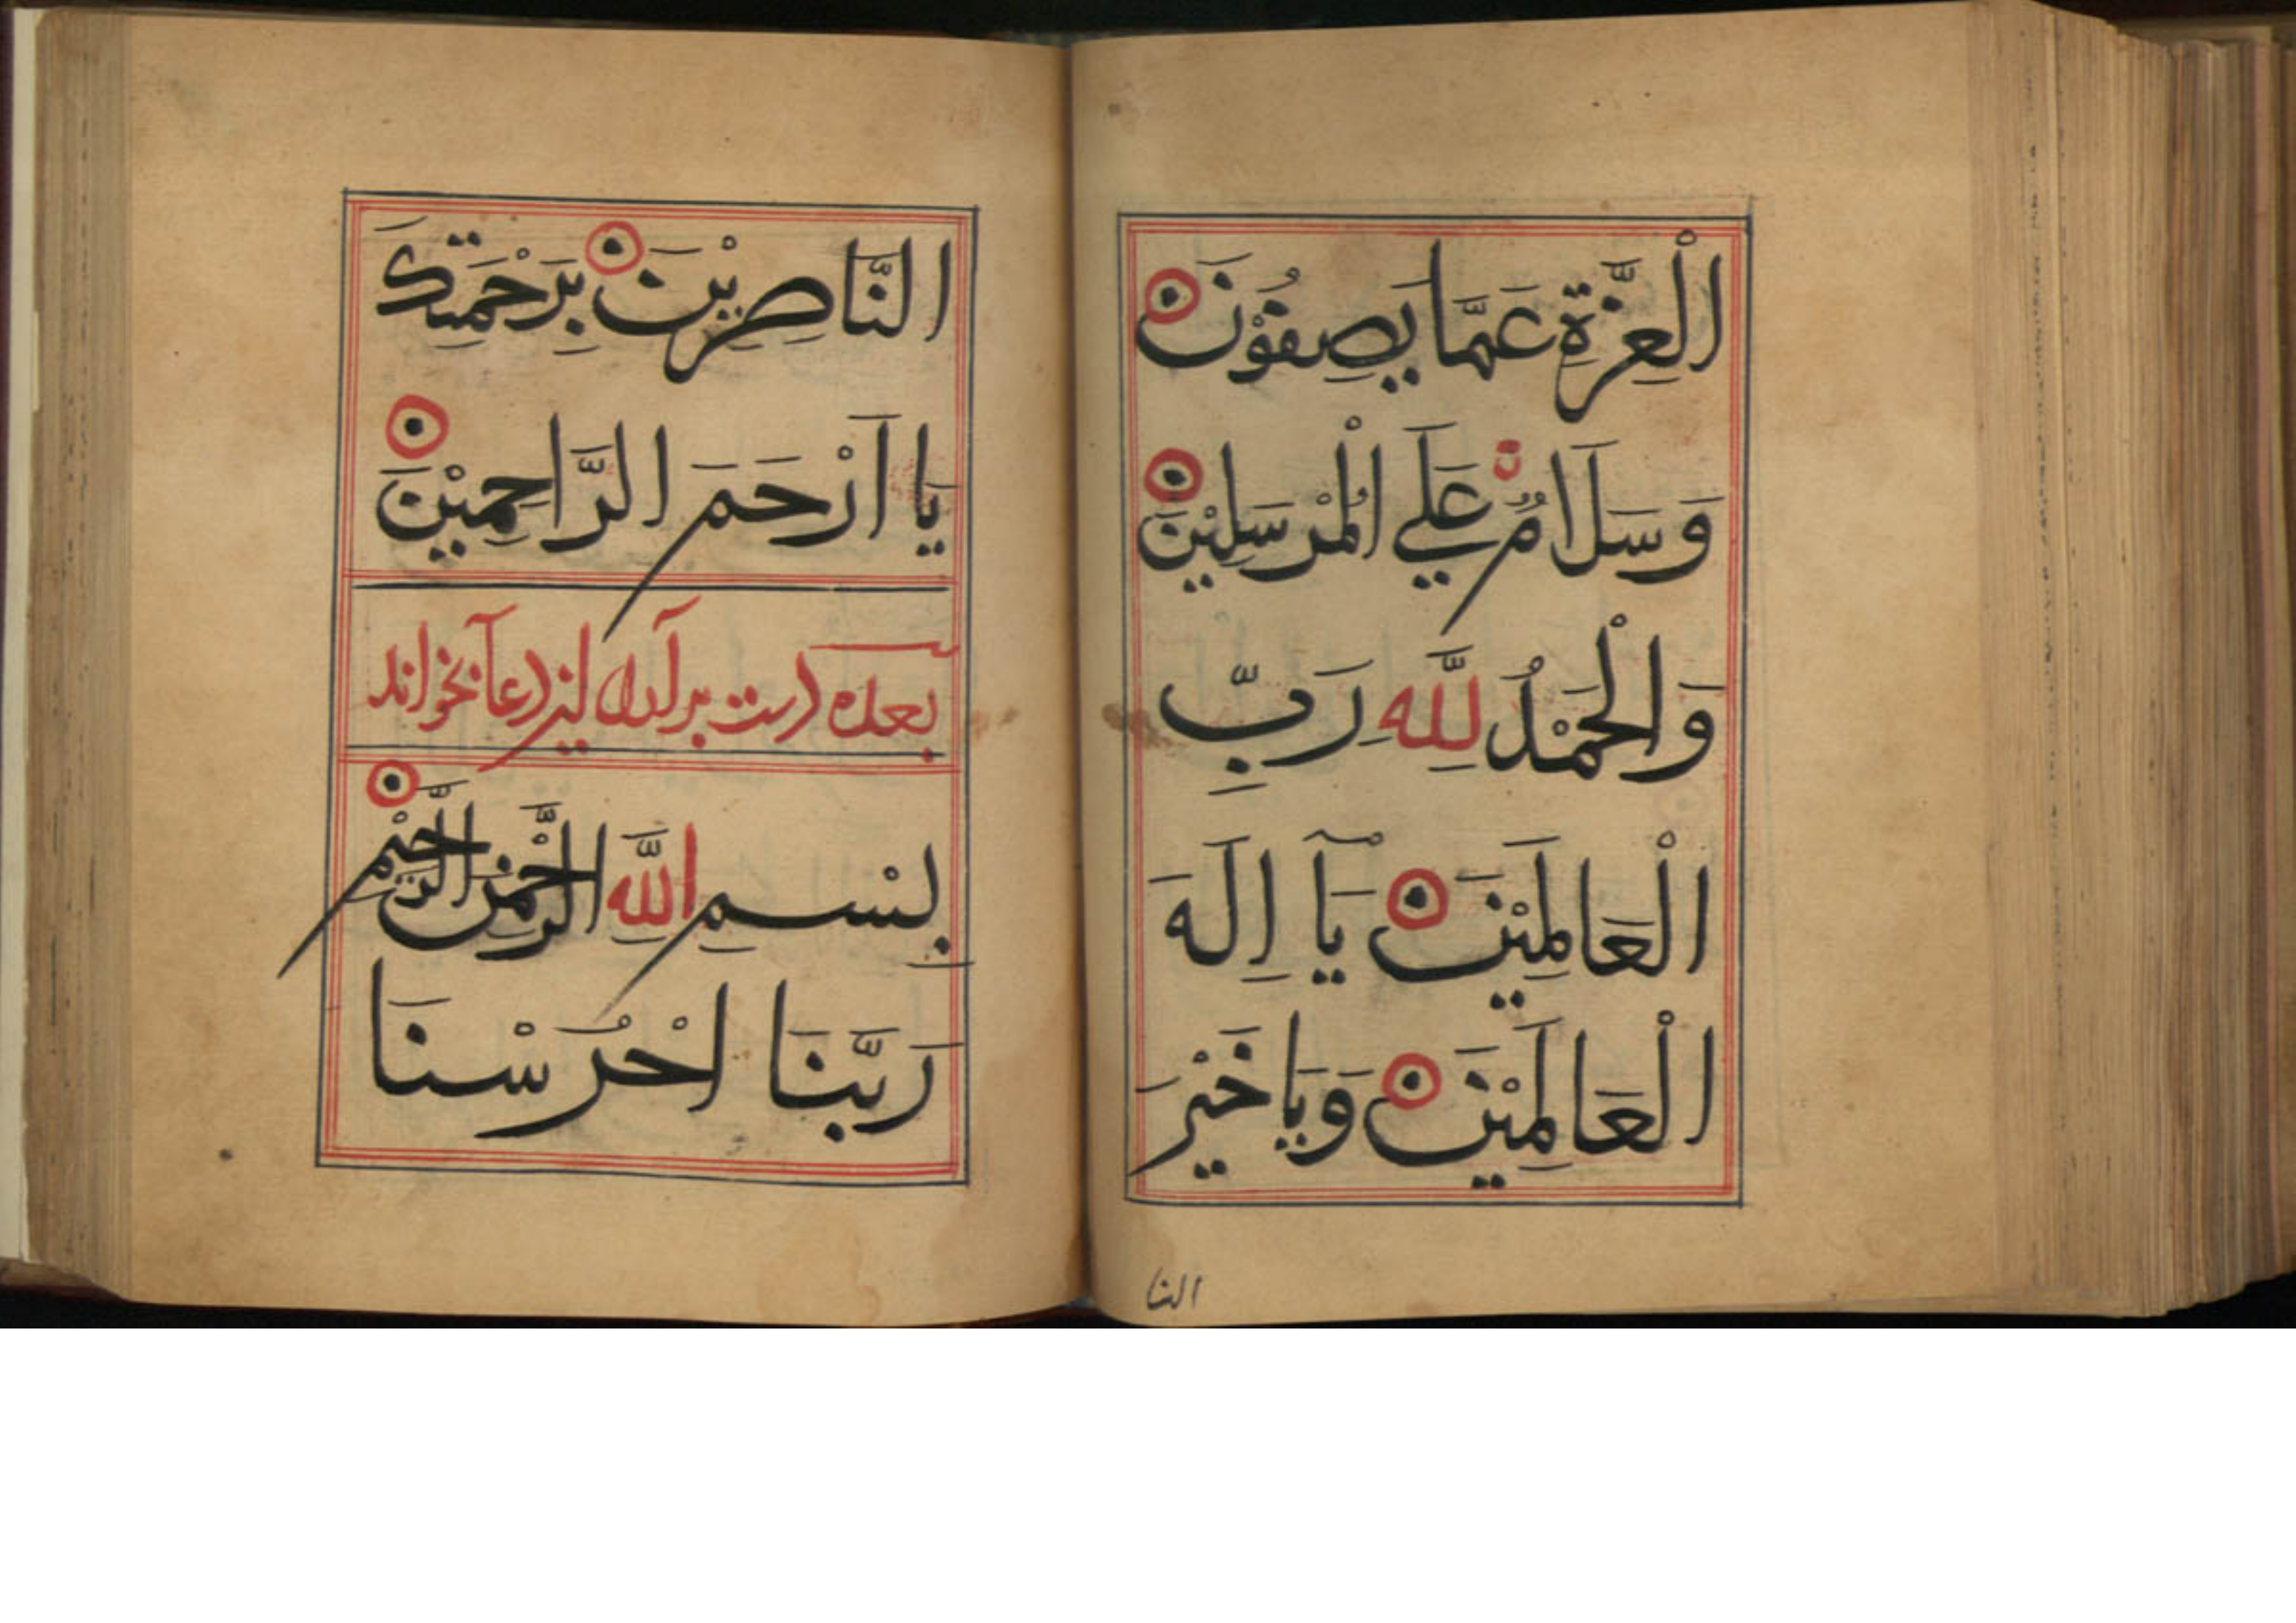 الْعِزَّةِ عَمَّا يَصِفُوْنَ
وَسَلَامٌ عَلَي الْمُرْسَلِيْنَ
وَالْحَمْدُ لِلَّهِ رَبِّ
الْعَالَمِيْنَ يَآ اِلَهَ
الْعَالَمِيْنَ وَيَا خَيْرَ
النا
النَّاصِرِيْنَ بِرَحْمَتِكَ
يَا اَرْحَمَ الرَّاحِمِيْنَ
بعده دست برآرد اين دعا بخواند
بِسْمِ اللَّهِ الرَّحْمَنِ الرَّحِيْمِ
رَبَّنَا احْرُسْنَا